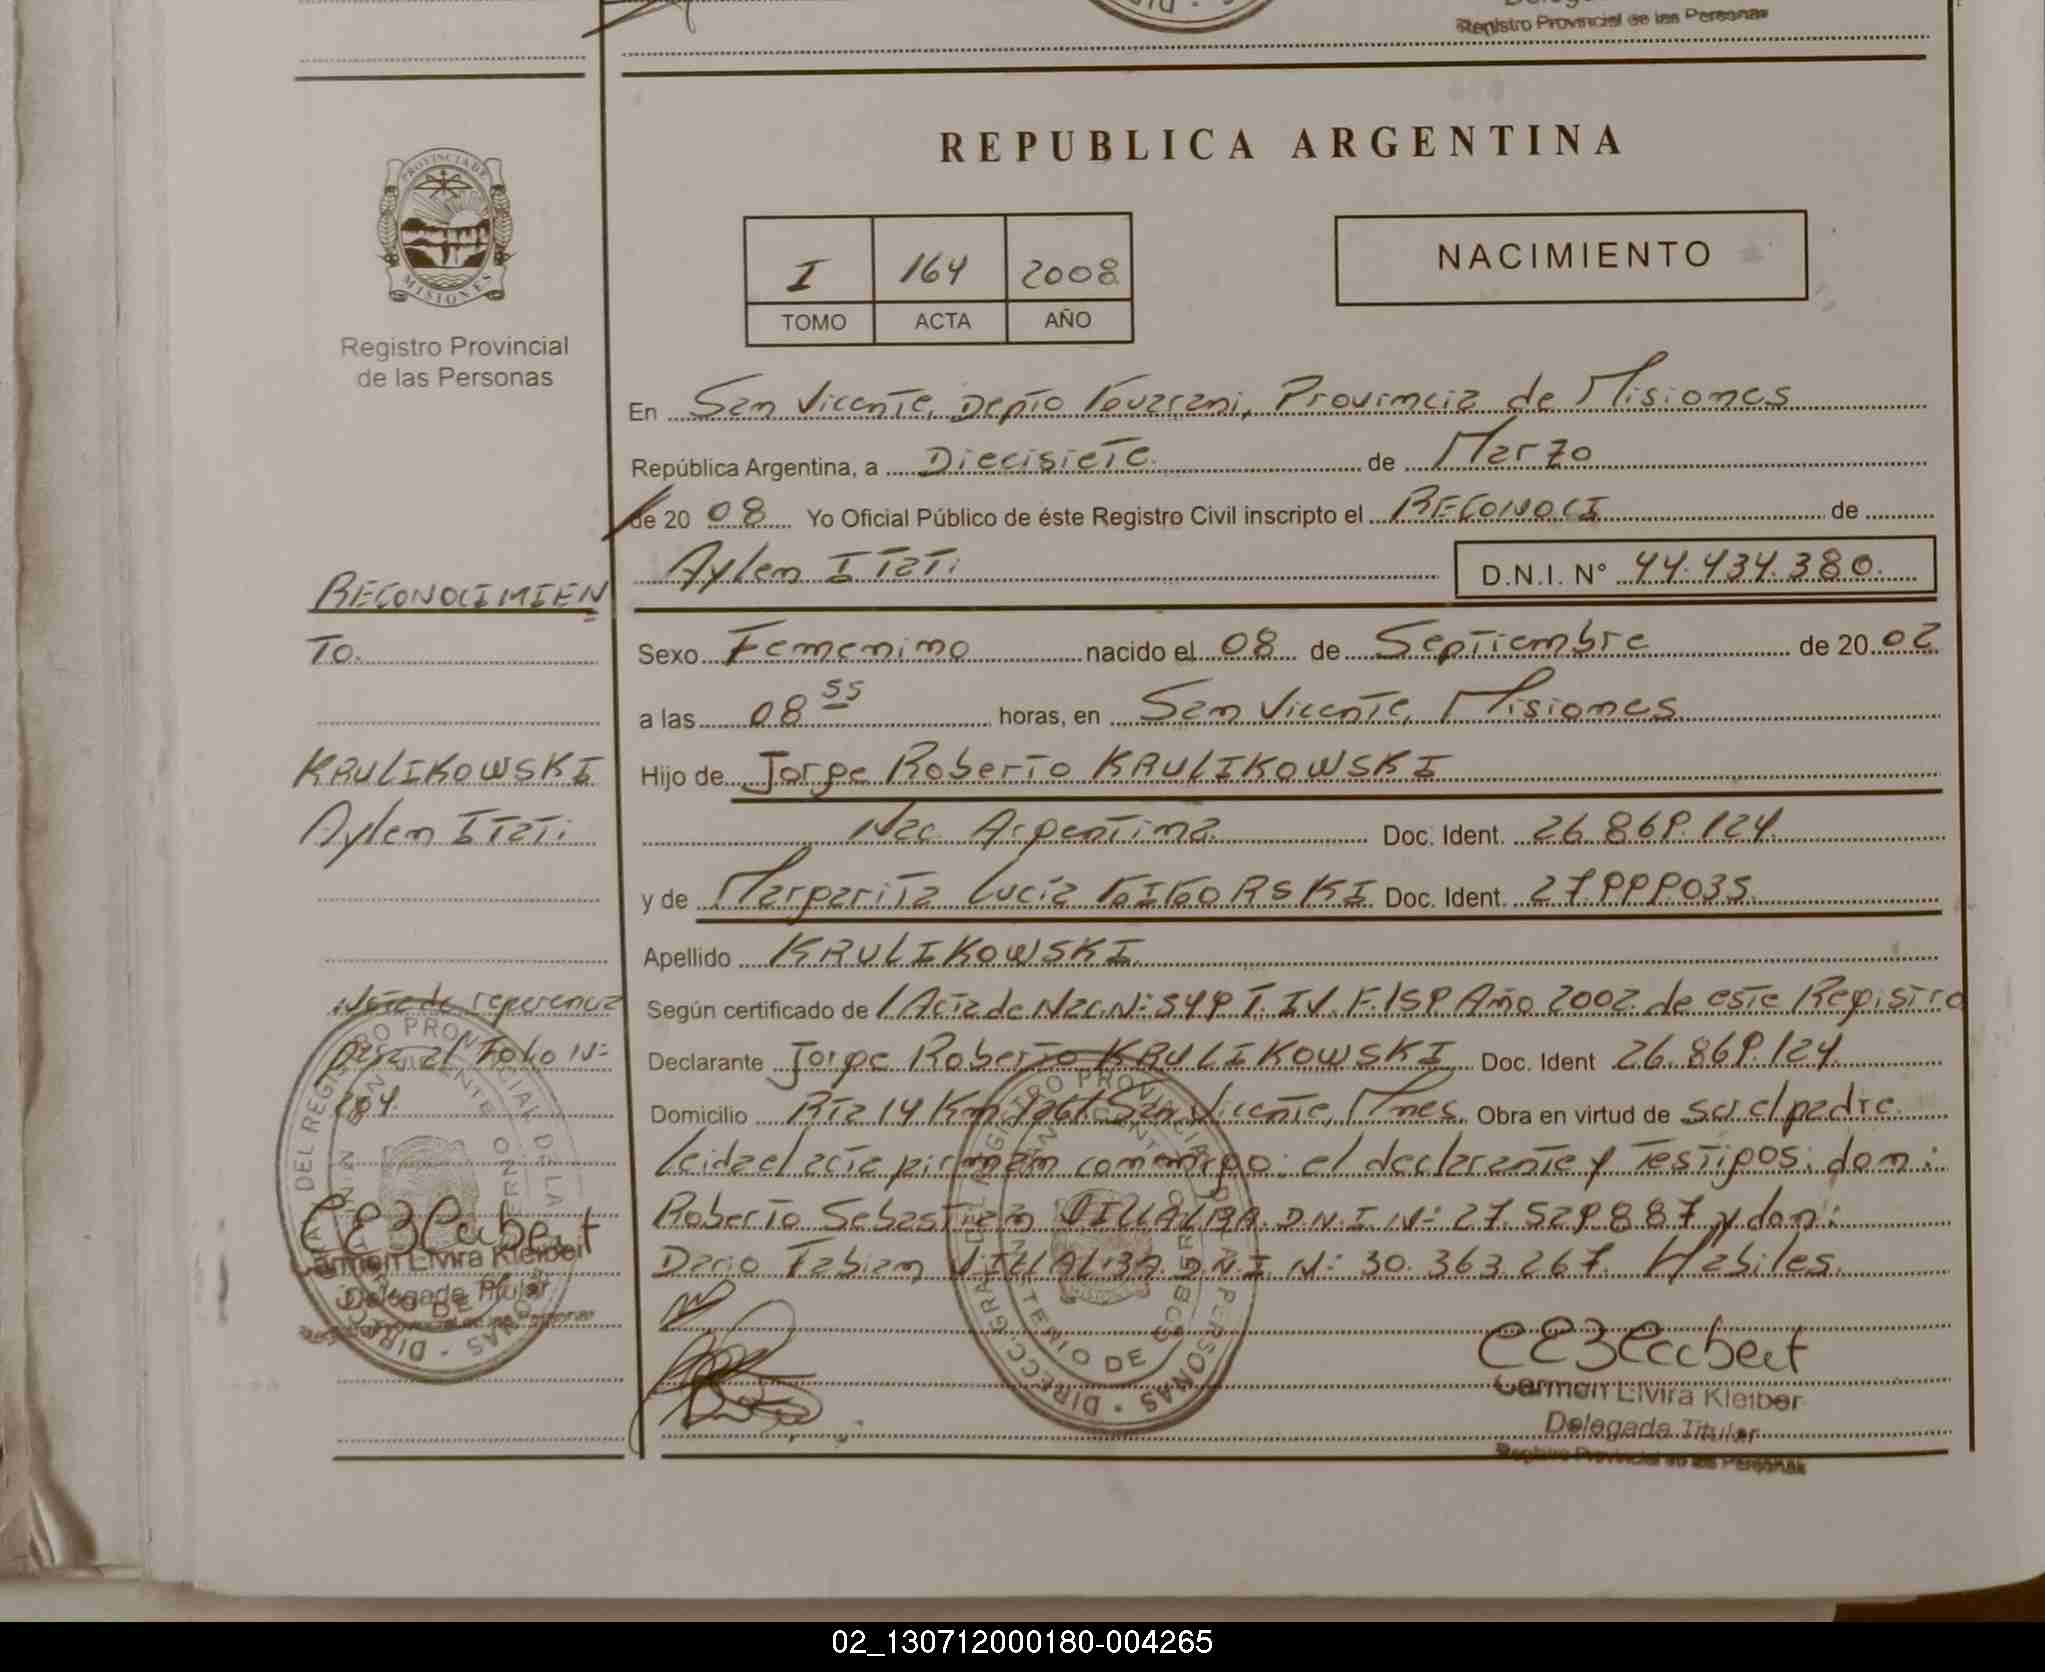 Registro Provincial de las Personas
REPUBLICA ARGENTINA
PROVINCIA DE
MISIONES
Registro Provincial
de las Personas
I 164 2008
TOMO ACTA AÑO
NACIMIENTO
En San Vicente, Depto Guarani, Provincia de Misiones
República Argentina, a Diecisiete de Marzo
de 20 08 Yo Oficial Público de éste Registro Civil inscripto el RECONOCI de
Aylen Itati D.N.I. N° 44.434.380.
RECONOCIMIEN
TO.
Sexo Femenino nacido el 08 de Septiembre de 20 02
a las 08 55 horas, en San Vicente, Misiones
KRULIKOWSKI
Hijo de Jorge Roberto KRULIKOWSKI
Aylen Itati
Nac. Argentina Doc. Ident. 26.869.124
y de Margarita Lucia GIGORSKI Doc. Ident. 27.999.035
Apellido KRULIKOWSKI
Nota de referencia
Según certificado de / Acta de Nac. N: 549 T. IV. F. 159 Año 2002 de este Registro
Pasa al Folio N:
Declarante Jorge Roberto KRULIKOWSKI Doc. Ident 26.869.124
284.
Domicilio Rta 14 Km 1261 San Vicente, Mnes. Obra en virtud de ser el padre
leida el acta firman conmigo: el declarante y testigos: don:
Roberto Sebastian VILLALBA. D.N.I. N: 27.529.887 y don:
Dario Fabian VILLALBA. D.N.I. N: 30.363.267. Habiles.
Carmen Elvira Kleiber
Delegada Titular
Registro Provincial de las Personas
Carmen Elvira Kleiber
Delegada Titular
Registro Provincial de las Personas
02_130712000180-004265